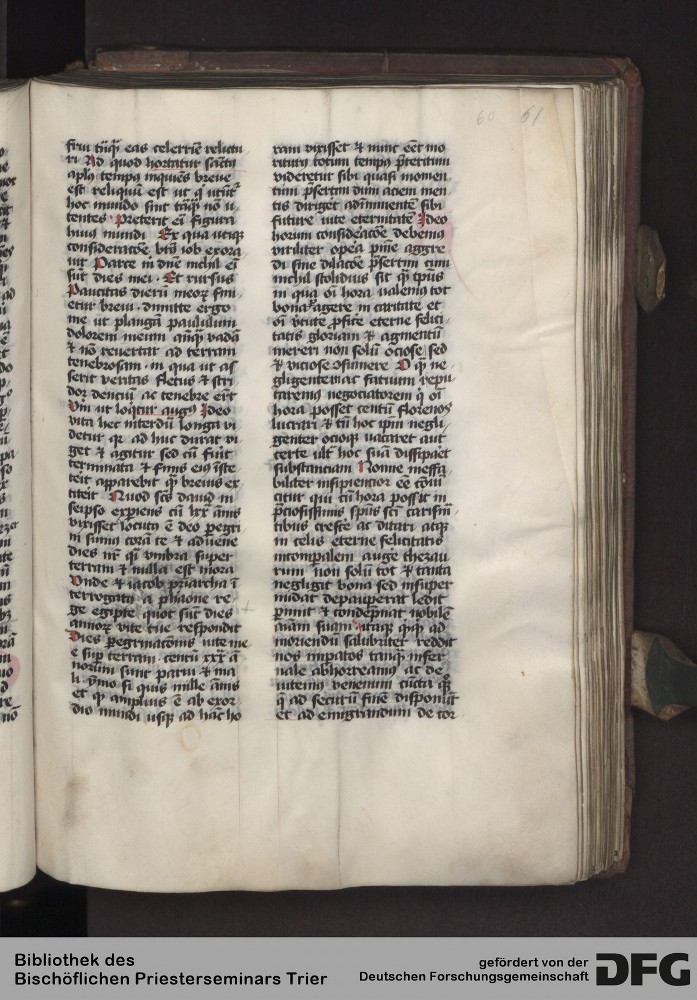 60 61
frui tāq̄ʒ eas celerrīe relictu
ri Ad quod hortatur sanctꝰ
aplꝰ tempꝰ inquiēs breue
est reliquū est ut q̄ utūtʳ
hoc mundo sint tāq̄ʒ nō u
tentes preterit eī figura
huiꝰ mundi Ex qua utiqʒ
consideracōe btūs iob exora
uit Parce m̄ dn̄e nichil eī
sūt dies mei Et rursus
Paucitas dierū meoꝝ fini
etur breui dimitte ergo
me ut plangā paululum
dolorem meum anteq̄ʒ vadā
& nō reuertar ad terram
tenebrosam in qua ut as
serit veritas fletus & stri
dor dencium ac tenebre erūt
Vn̄ ut loq̄tur augꝰ Ideo
vita hec interdū longa vi
detur qʒ ad huc durat vi
get & agitur sed cū fuit
terminata & finis eiꝰ iste
terit apparebit qʒ breuis ex
titerit Quod scūs dauid in
seipso expiens cū lxx ānis
vixisset locutꝰ ē deo peregri
nꝰ sumꝰ corā te & aduene
dies nr̄i qʒ vmbra super
terram & nulla est mora
Vnde & iacob priarcha ī
terrogatꝰ a pharone re
ge egipte quot sūt dies
annoꝝ vite tue respondit
Dies peregrinacōnis vite me
e sup terram centū xxx ā
norum sunt parui & ma
li ymo si quis mille ānis
et qʒ ampliꝰ ē ab exor
dio mundi usqʒ ad hāc ho
ram vixisset & nunc eēt mo
riturꝰ totum tempꝰ p̄teritum
videretur sibi quasi momen
tum p̄sertim dum aciem men
tis diriget ad imminentē sibi
future vite eternitatē Ideo
horum consideracōe debemꝰ
viriliter opera pn̄ie aggre
di sine dilacōe p̄sertim cum
nichil stolidius sit q̄ʒ tpꝰ
in quo oī hora valemꝰ tot
bona agere in caritate et
oī v̄tute p̄ficere eterne felici
tatis gloriam & agmentū
mereri non solū ociose sed
& viciose consumere O q̄ʒ ne
gligentem ac fatuum repu
taremꝰ negociatorem q̄ oī
hora posset centū florenos
lucrari & tū hoc ip̄m negli
genter ociose vacaret aut
certe ult̄ hoc suā dissiparet
substanciam Nonne ineffa
biliter insipiencior eē conui
citur qui tn̄ hora possit in
p̄ciosissimis spūs scī carism̄
tibus crescere ac ditari atqʒ
in celis eterne felicitatis
incompalem auge thezau
rum non solū tot & tanta
negligit bona sed insuper
nudat depauperat ledit
perimit & condēpnat nobilē
aīam suam utiqʒ quicqʒ ad
moriendū salubriter reddit
nos imparatos tanqʒ infer
nale abhorreamꝰ ac de
uitemꝰ venenum cūcta qʒ
q̄ ad securū finē disponūt
et ad emigrandum de cor
Bibliothek des
Bischöflichen Priesterseminars Trier
gefördert von der
Deutschen Forschungsgemeinschaft
DFG